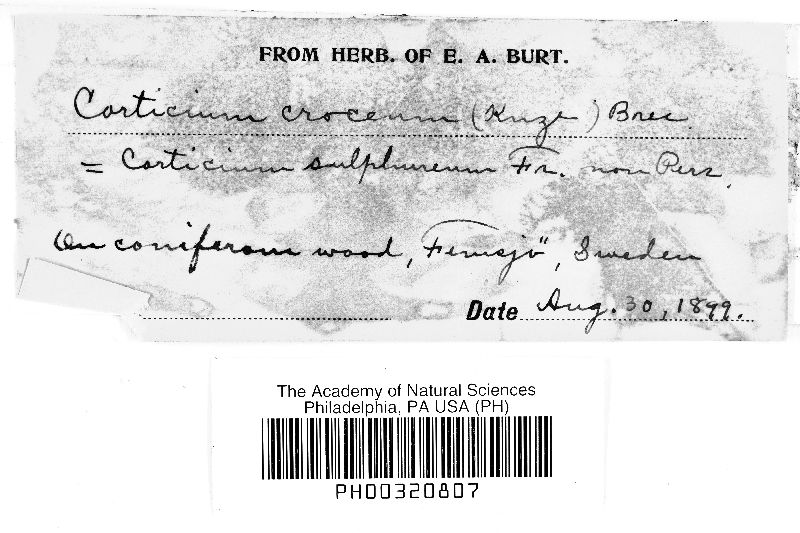 FROM HERB. OF E. A. BURT.
Corticium croceum (Kunze) Bres.
= Corticium sulphureum Fr. non Pers.
On coniferous wood, Femsjö, Sweden
Date Aug. 30, 1899.
The Academy of Natural Sciences
Philadelphia, PA USA (PH)
PH00320807